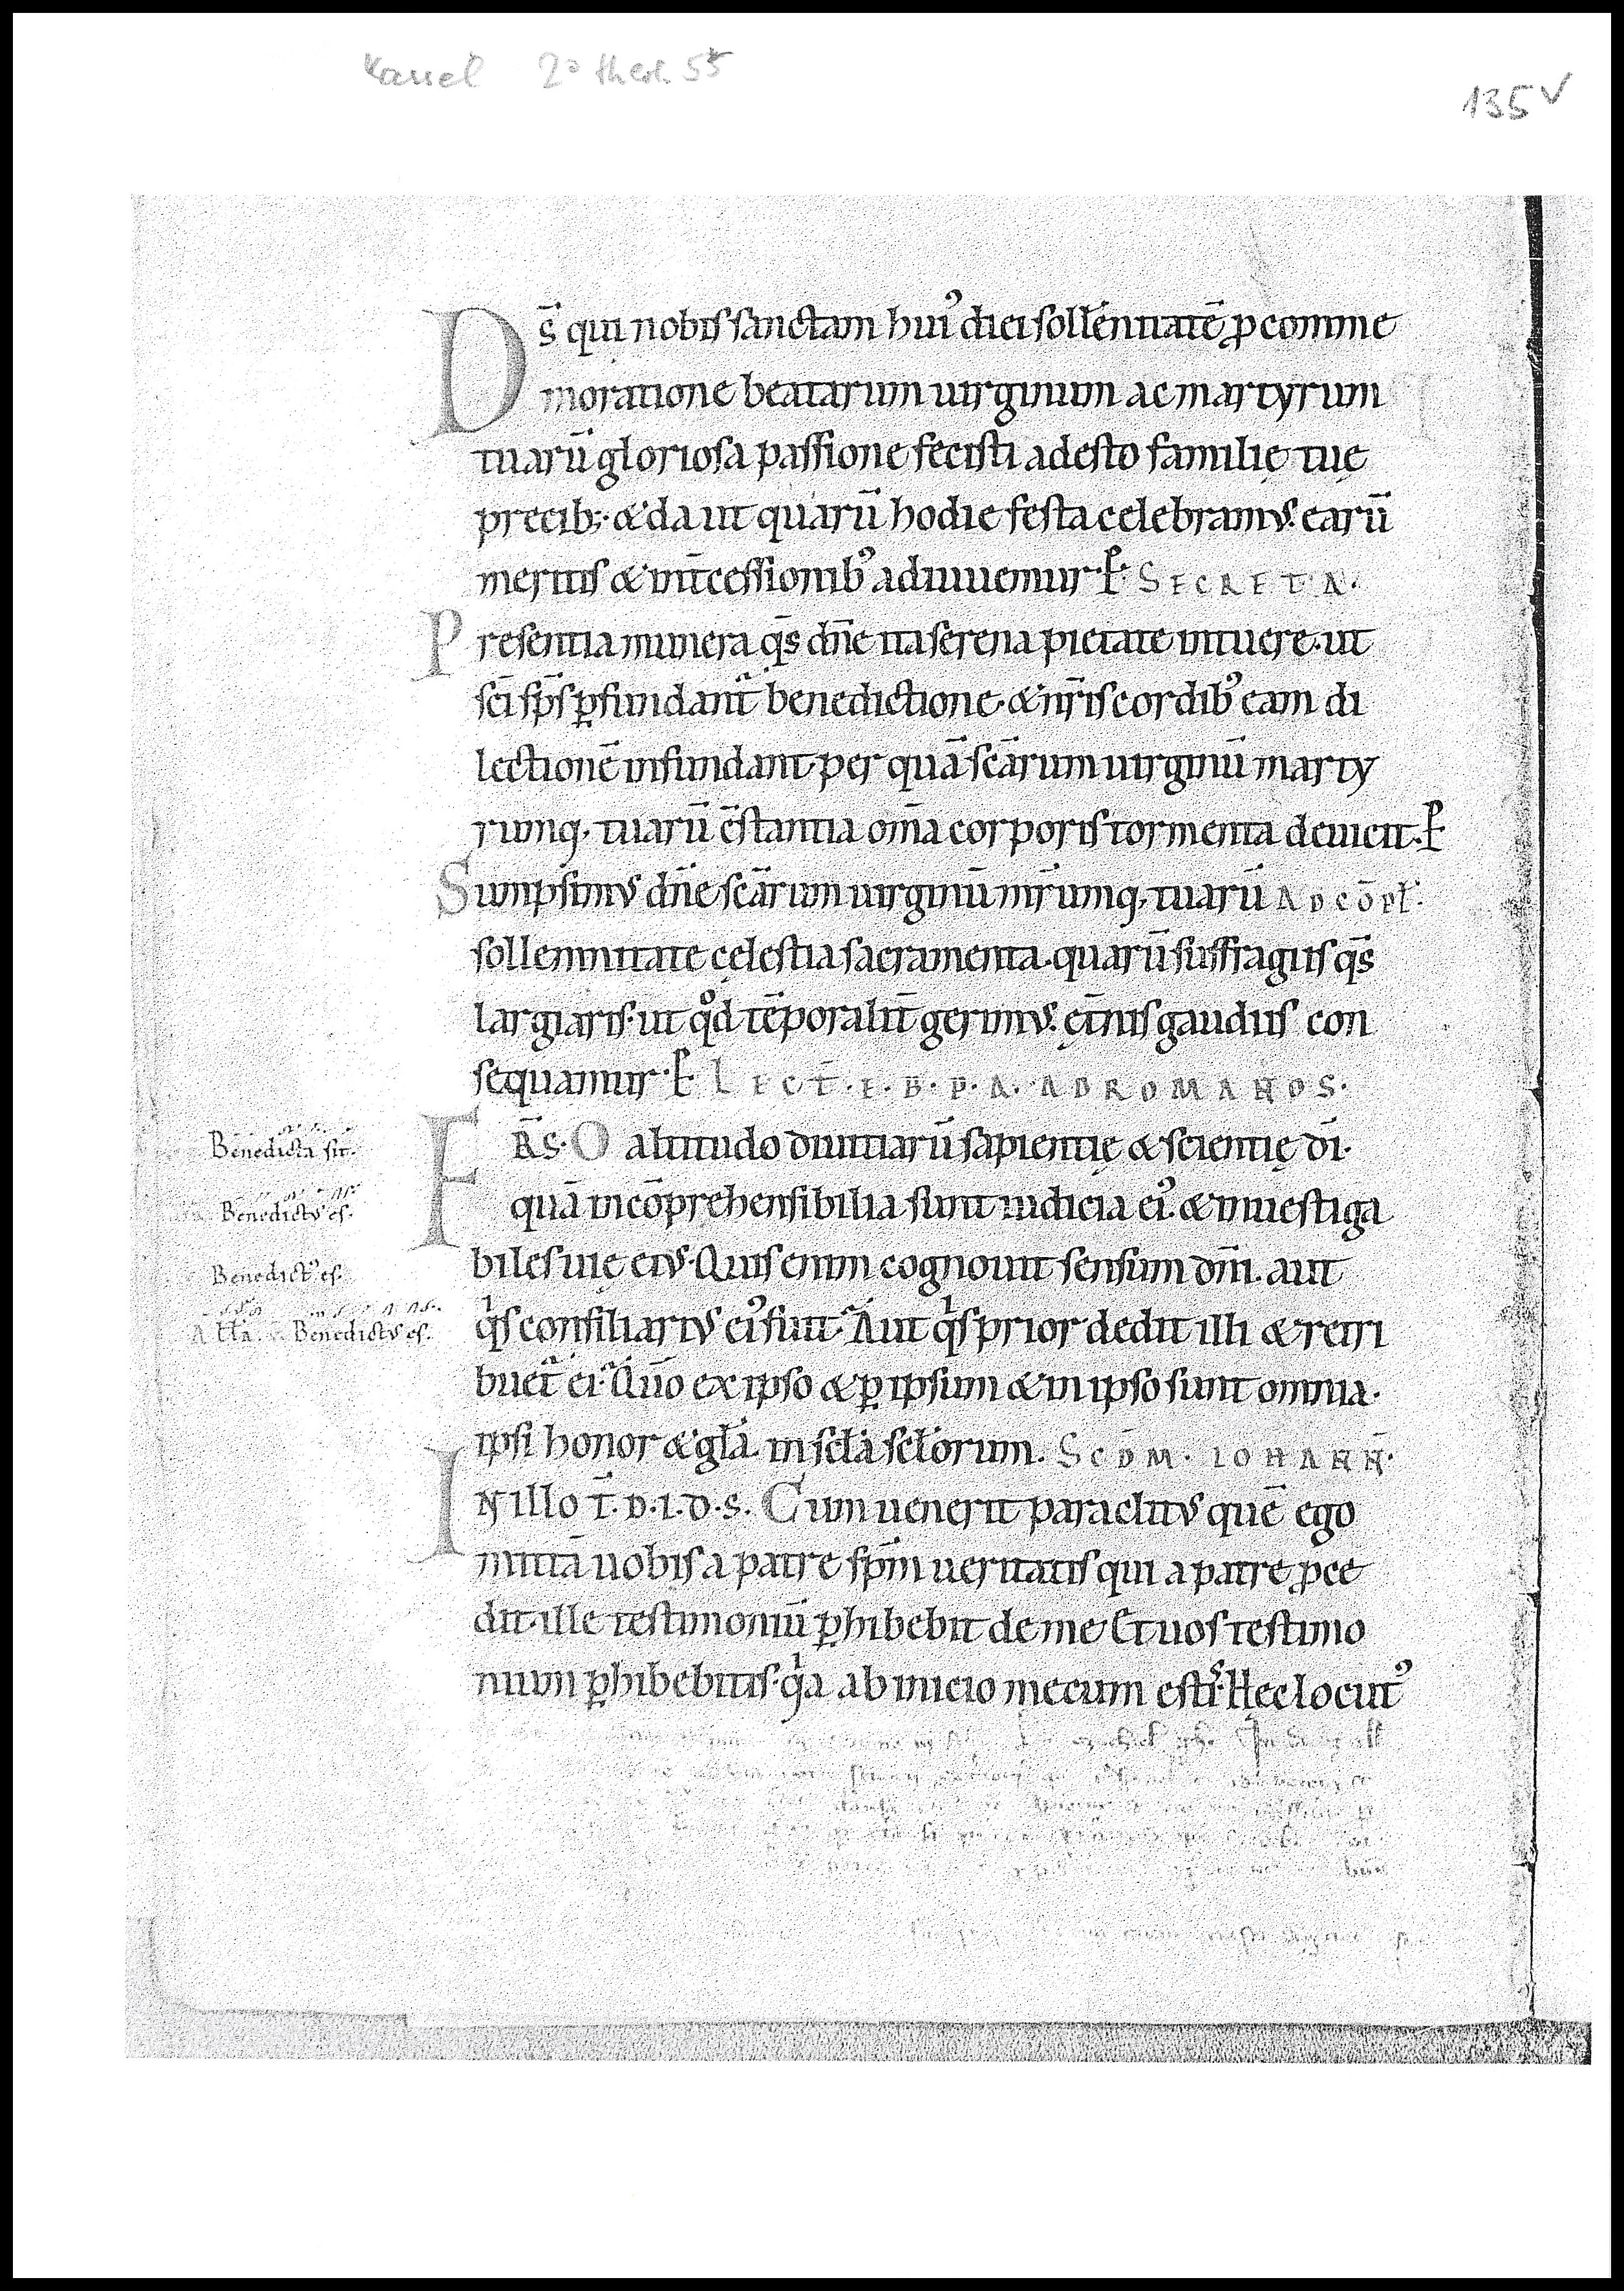 Kassel 2° theol. 55
135 v
Ds̄ qui nobis sanctam huiꝰ diei sollēnitatē ꝓ comme
moratione beatarum uirginum ac martyrum
tuarū gloriosa passione fecisti adesto familię tuę
precib; · & da ut quarū hodie festa celebramus. earū
meritis & int̄cessionibꝰ adiuuemur · P̲ · SECRETA.
Presentia munera q̄s dn̄e ita serena pietate intuere · ut
sc̄i sp̄s ꝑfundant᷑ benedictione · & nr̄is cordibꝰ eam di
lectionē infundant · per quā sc̄arum uirginū marty
rumq; tuarū c̄stantia om̄a corporis tormenta deuicit. P̲
Sumpsimus dn̄e sc̄arum uirginū mr̄umq; tuarū AD CŌPL̄.
sollemnitate cęlestia sacramenta · quarū suffragiis q̄s
largiaris · ut qͦd tēporalit̄ gerimus. ęt̄nis gaudiis con
sequamur · P̲ · LECT̄. E. B. P. A. AD ROMANOS.
FR̄S. O altitudo diuitiarū sapientię & scientię dī.
quā incōprehensibilia sunt iudicia eiꝰ. & inuestiga
biles uię eius. Quis enim cognouit sensum dn̄i. aut
qͥs consiliarius eiꝰ fuit. Aut qͥs prior dedit illi & retri
buet᷑ ei. Qm̄o ex ipso & ꝑ ipsum & in ipso sunt omnia.
ipsi honor & gl̄a. in scl̄a scl̄orum. SCDM. IOHANN̄.
IN illo T̄. D. I. D. S. Cum uenerit paraclitus quē ego
mittā uobis a patre sp̄m ueritatis qui a patre ꝓce
dit · ille testimoniū ꝑhibebit de me Et uos testimo
nium ꝑhibebitis · qͥa ab inicio mecum estis. Hęc locutꝰ
Benedicta sit.
Benedictus es.
Benedictꝰ es.
All̄a. Benedictus es.